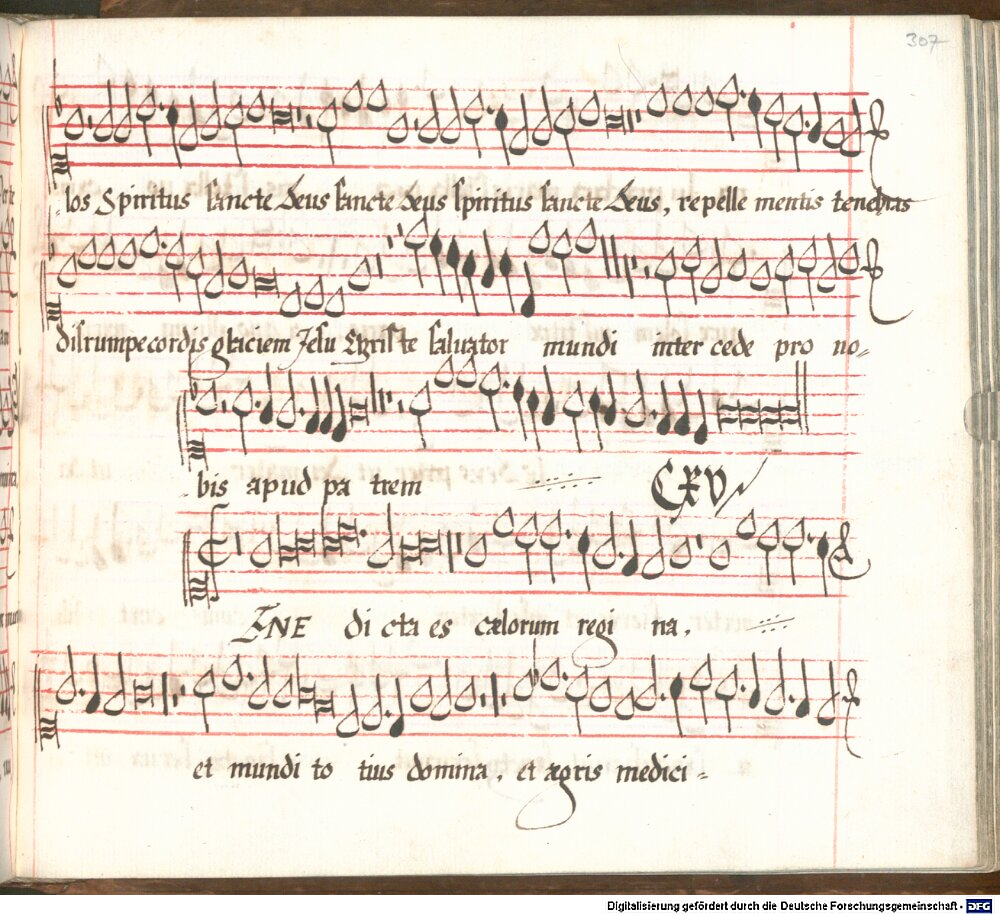 307
los Spiritus sancte Deus sancte Deus spiritus sancte Deus, repelle mentis tenebras
disrumpe cordis glaciem Jesu Christe saluator mundi inter cede pro no-
bis apud pa trem
CXV
ENE di cta es cælorum regi na.
et mundi to tius domina, et ægris medici-
Digitalisierung gefördert durch die Deutsche Forschungsgemeinschaft - DFG